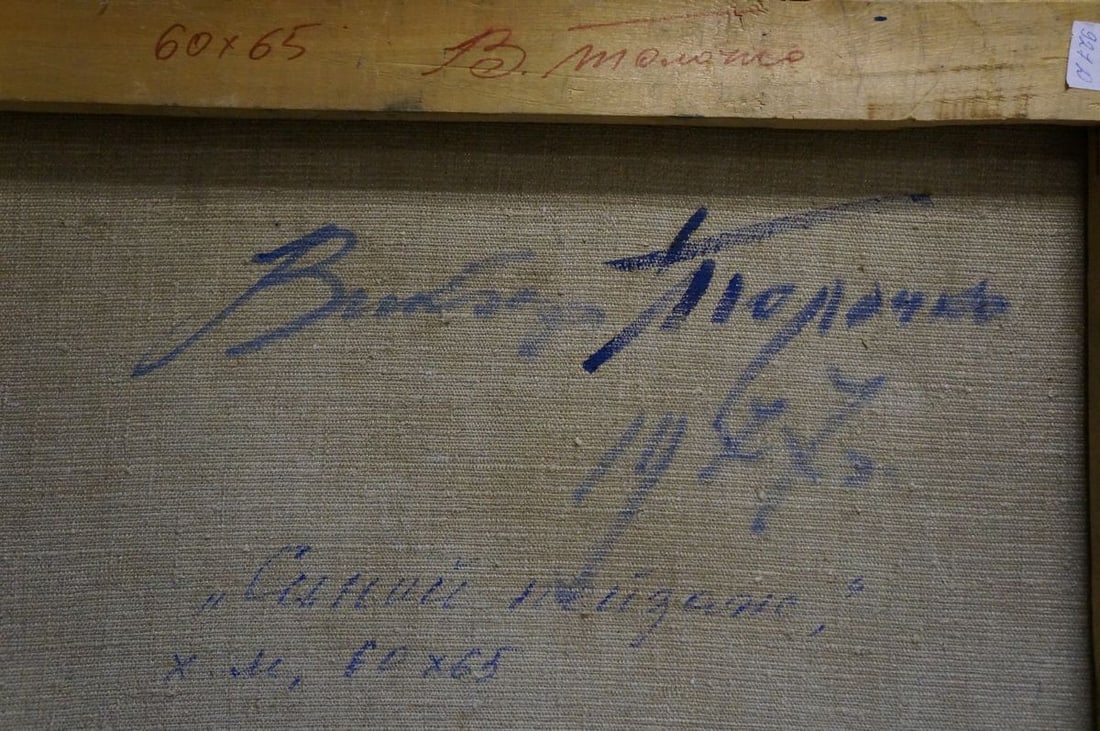 60×65 В. Толочко
Виктор Толочко
1977г.
„Синий пейзаж,“
х. м, 60×65